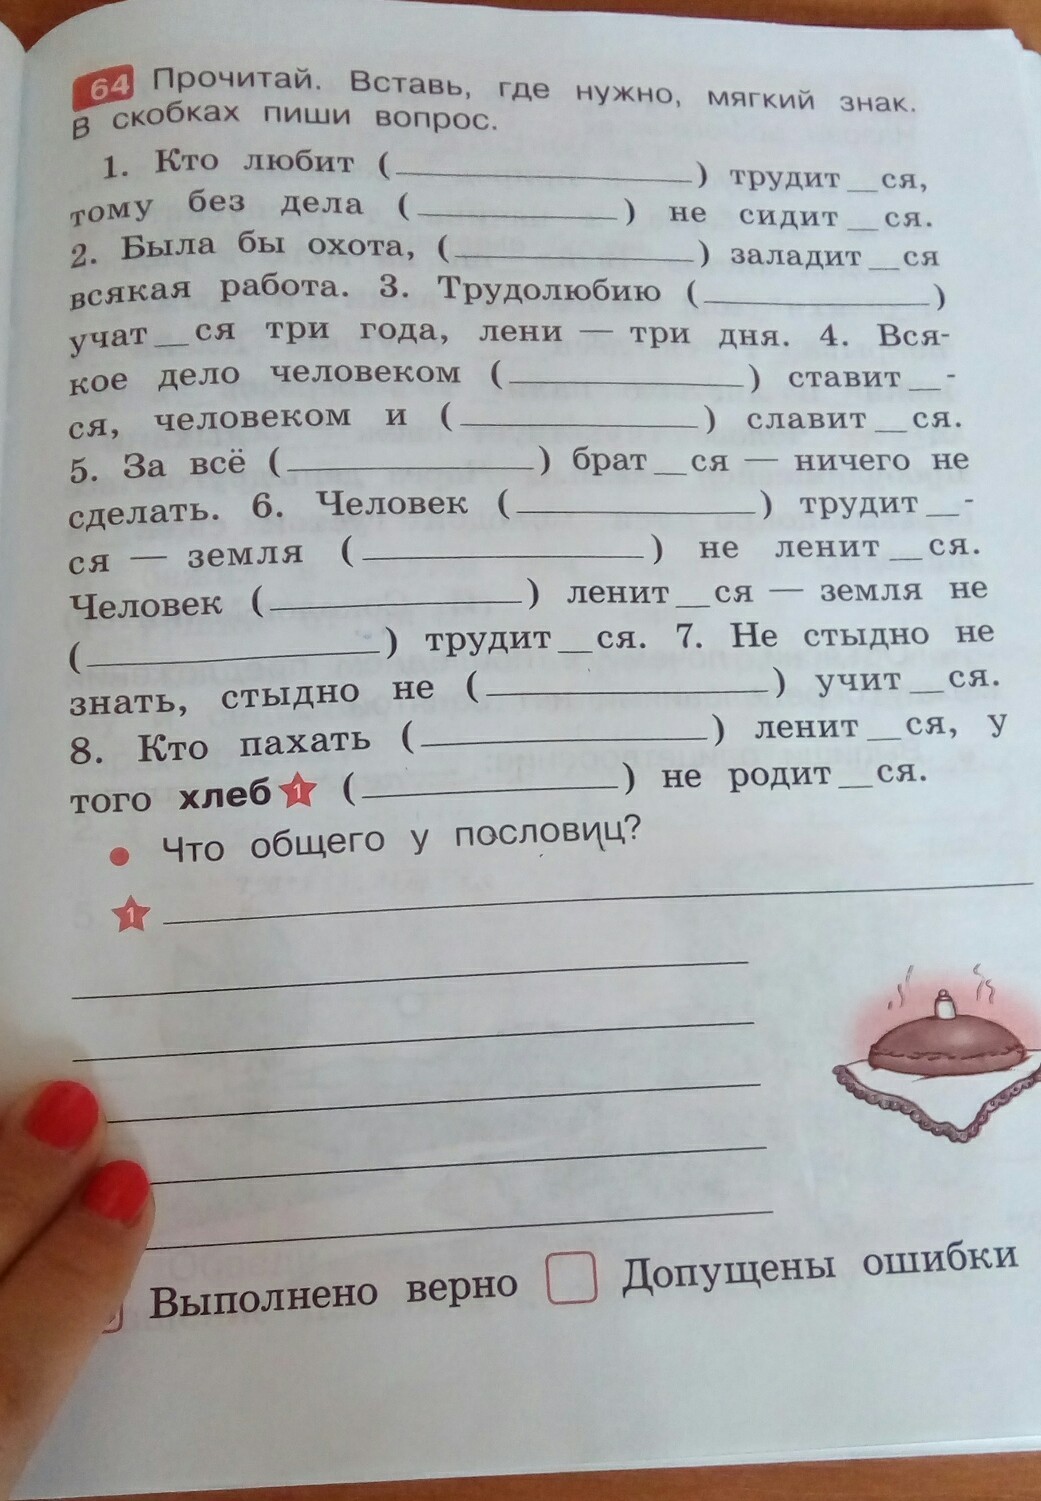 64 Прочитай. Вставь, где нужно, мягкий знак.
В скобках пиши вопрос.
1. Кто любит (____________) трудит__ся,
тому без дела (____________) не сидит__ся.
2. Была бы охота, (____________) заладит__ся
всякая работа. 3. Трудолюбию (____________)
учат__ся три года, лени — три дня. 4. Вся-
кое дело человеком (____________) ставит__-
ся, человеком и (____________) славит__ся.
5. За всё (____________) брат__ся — ничего не
сделать. 6. Человек (____________) трудит__-
ся — земля (____________) не ленит__ся.
Человек (____________) ленит__ся — земля не
(____________) трудит__ся. 7. Не стыдно не
знать, стыдно не (____________) учит__ся.
8. Кто пахать (____________) ленит__ся, у
того хлеб 1 (____________) не родит__ся.
• Что общего у пословиц?
1
Выполнено верно Допущены ошибки